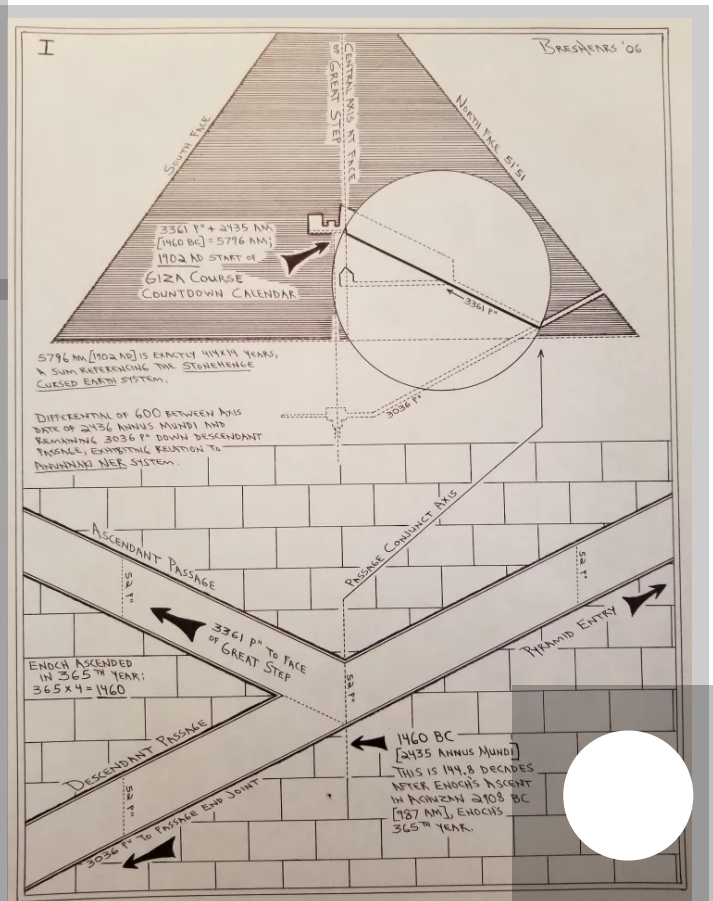 I
BRESHEARS '06
CENTRAL AXIS AT FACE
OF GREAT STEP
SOUTH FACE
NORTH FACE 51'51
3361 P" + 2435 AM
[1460 BC] = 5796 AM;
1902 AD START OF
GIZA COURSE
COUNTDOWN CALENDAR
3361 P"
5796 AM [1902 AD] IS EXACTLY 414X14 YEARS,
A SUM REFERENCING THE STONEHENGE
CURSED EARTH SYSTEM.
3036 P"
DIFFERENTIAL OF 600 BETWEEN AXIS
DATE OF 2436 ANNUS MUNDI AND
REMAINING 3036 P" DOWN DESCENDANT
PASSAGE, EXHIBITING RELATION TO
ANUNNAKI NER SYSTEM.
PASSAGE CONJUNCT AXIS
ASCENDANT PASSAGE
52 P"
52 P"
3361 P" TO FACE
OF GREAT STEP
PYRAMID ENTRY
ENOCH ASCENDED
IN 365TH YEAR:
365 X 4 = 1460
52 P"
DESCENDANT PASSAGE
52 P"
3036 P" TO PASSAGE END JOINT
1460 BC
[2435 ANNUS MUNDI]
THIS IS 144.8 DECADES
AFTER ENOCH'S ASCENT
IN ACHUZAN 2908 BC
[987 AM], ENOCH'S
365TH YEAR.